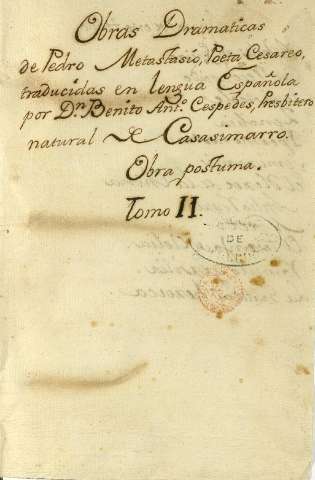 Obras Dramaticas
de Pedro Metastasio, Poeta Cesareo,
traducidas en lengua Española
por Dn. Benito Anto. Cespedes, Presbitero
natural de Casasimarro.
Obra postuma.
Tomo II.
DE